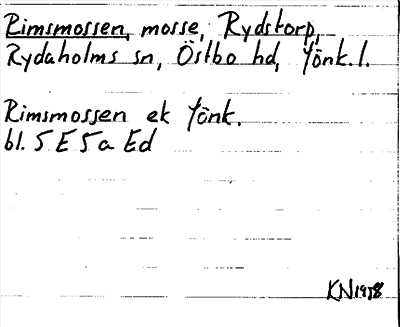 Rimsmossen, mosse, Rydstorp,
Rydaholms sn, Östbo hd, Jönk. l.
Rimsmossen ek Jönk.
bl. 5 E 5 a Ed
KN 1978